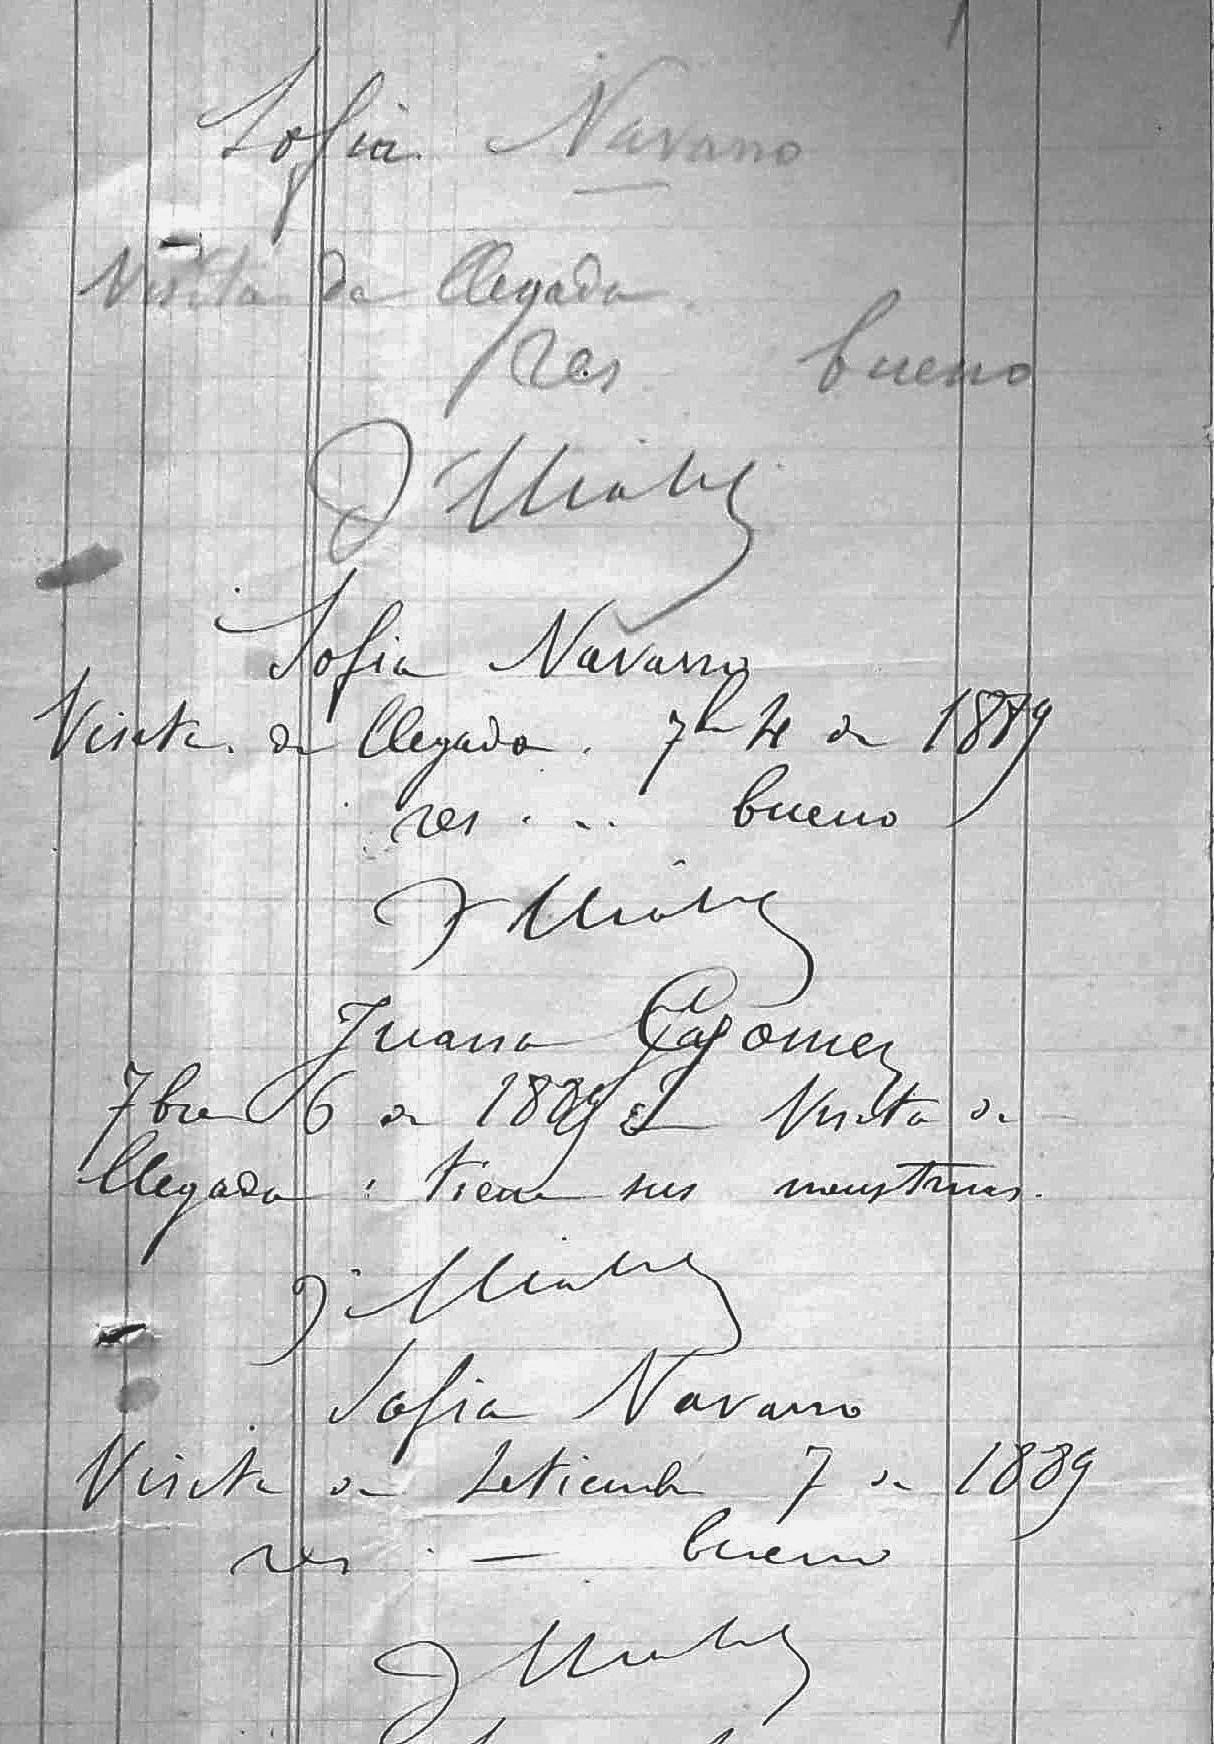 Sofia Navarro
Visita de llegada.
res bueno
Sofia Navarro
Visita de llegada. 7b 4 de 1889
res . . . bueno
Juana
7bre 6 de 1889 Visita de
llegada : tiene sus menstruos.
Sofia Navarro
Visita de Setiembre 7 de 1889
res . — bueno